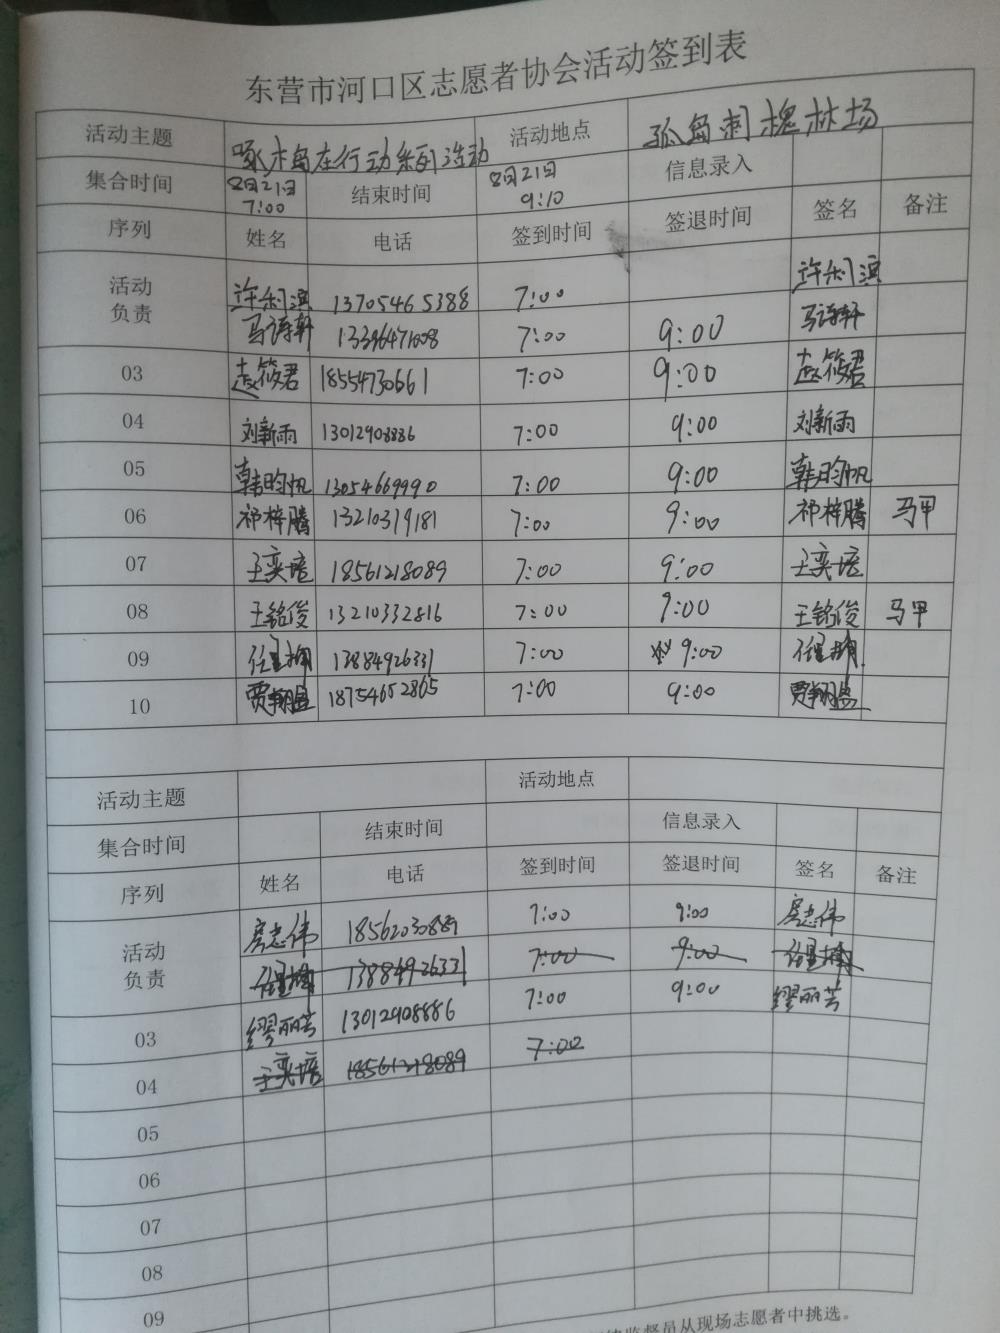 东营市河口区志愿者协会活动签到表
活动主题 啄木鸟在行动系列活动 活动地点 孤岛刺槐林场
集合时间 8月21日 7:00 结束时间 8月21日 9:10 信息录入
序列 姓名 电话 签到时间 签退时间 签名 备注
活动负责 许利滨 13705465388 7:00 许利滨
马诗轩 13396471008 7:00 9:00 马诗轩
03 赵筱君 18554730661 7:00 9:00 赵筱君
04 刘新雨 13012908886 7:00 9:00 刘新雨
05 韩昀帆 13054669990 7:00 9:00 韩昀帆
06 祁梓腾 13210319181 7:00 9:00 祁梓腾 马甲
07 王奕培 18561218089 7:00 9:00 王奕培
08 王铭俊 13210332816 7:00 9:00 王铭俊 马甲
09 13884926331 7:00 9:00
10 贾翔盈 18754652865 7:00 9:00 贾翔盈
活动主题 活动地点
集合时间 结束时间 信息录入
序列 姓名 电话 签到时间 签退时间 签名 备注
活动负责 房志伟 18562030889 7:00 9:00 房志伟
13884926331 7:00 9:00
03 缪丽芳 13012908886 7:00 9:00 缪丽芳
04 王奕培 18561218089 7:00
05
06
07
08
09
监督员从现场志愿者中挑选。